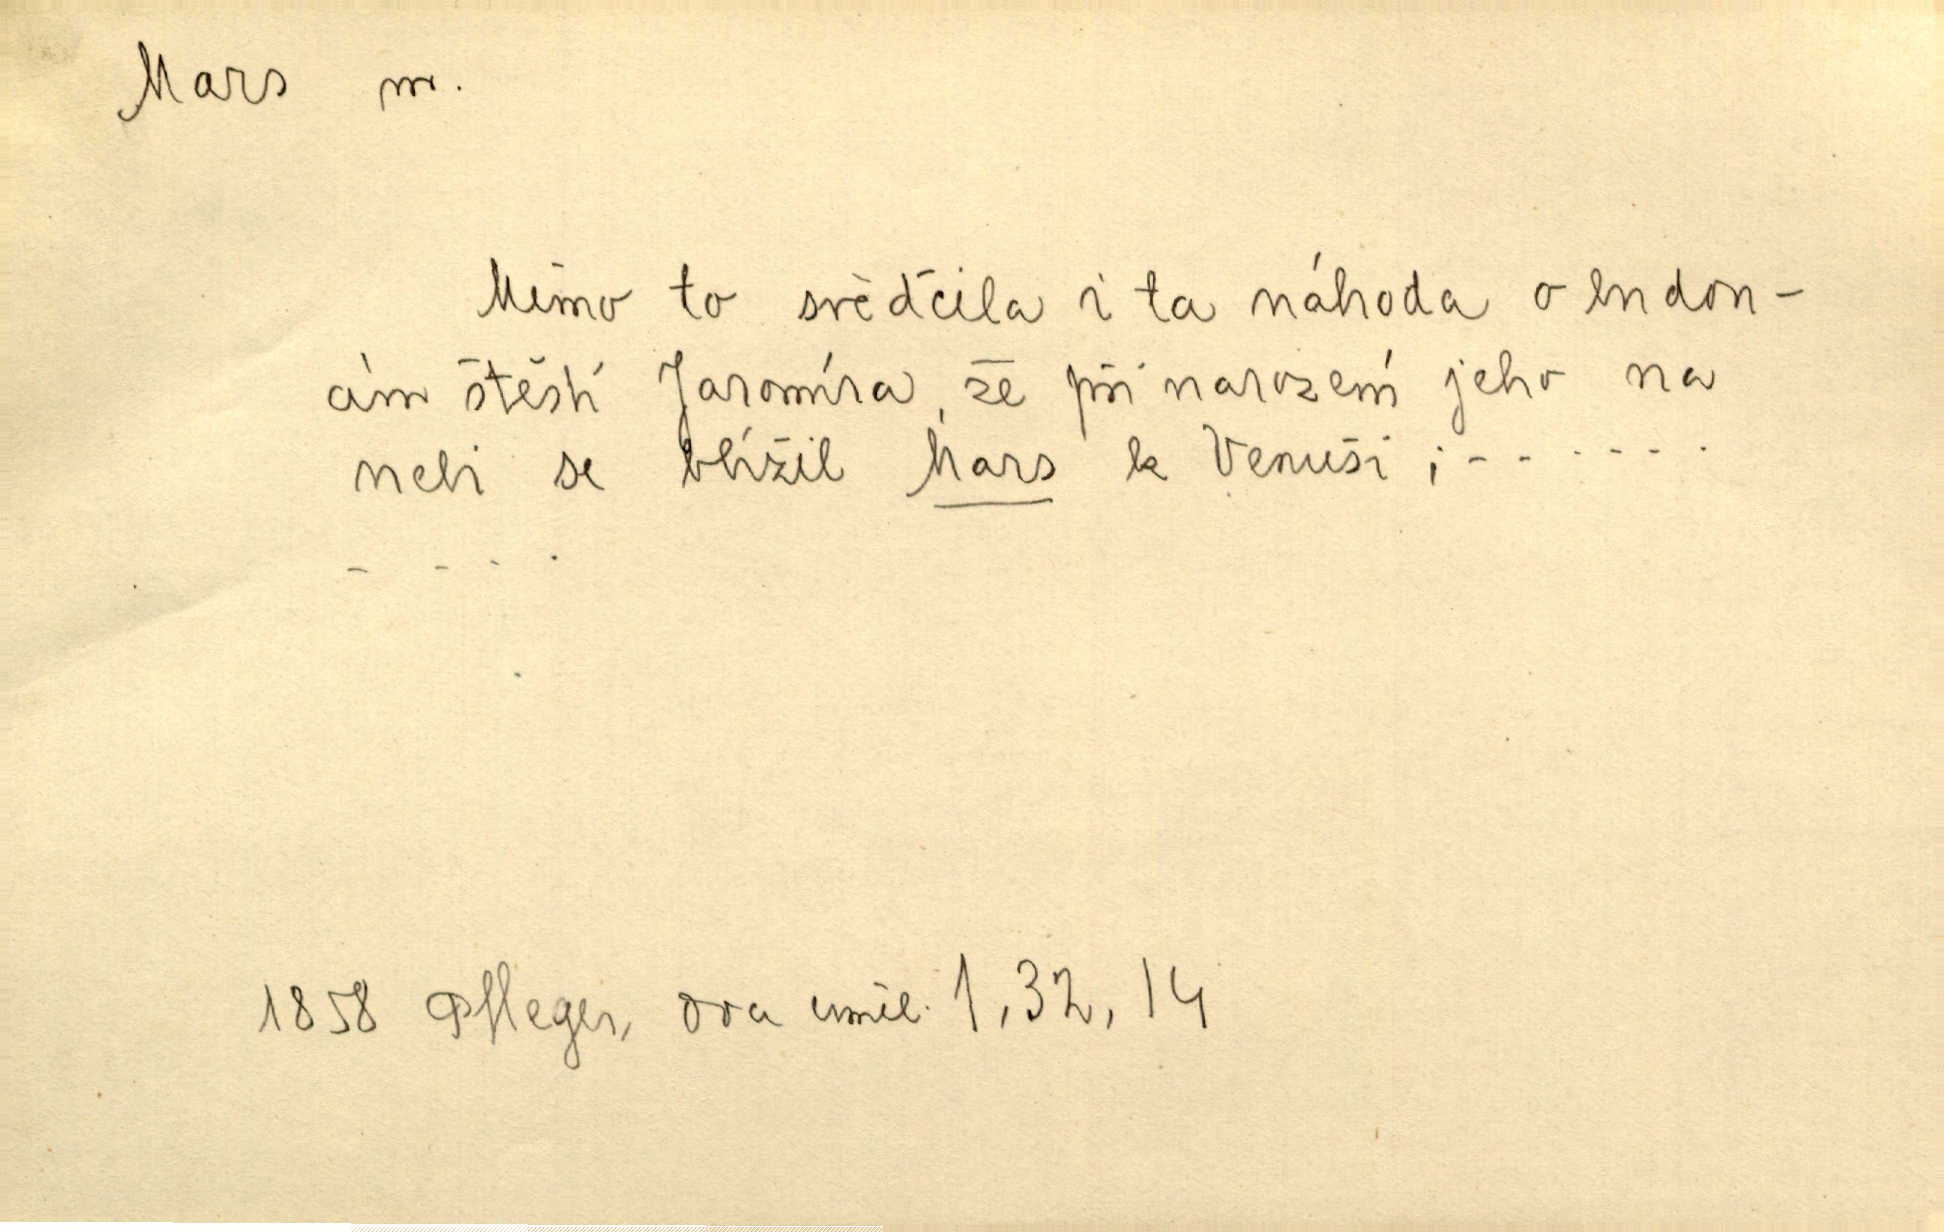 Mars m.
Mimo to svědčila i ta náhoda o budou-
cím štěstí Jaromíra, že při narození jeho na
nebi se blížil Mars k Venuši ; - - - - - -
- - - .
1858 Pfleger, Dva uměl. 1, 32, 14